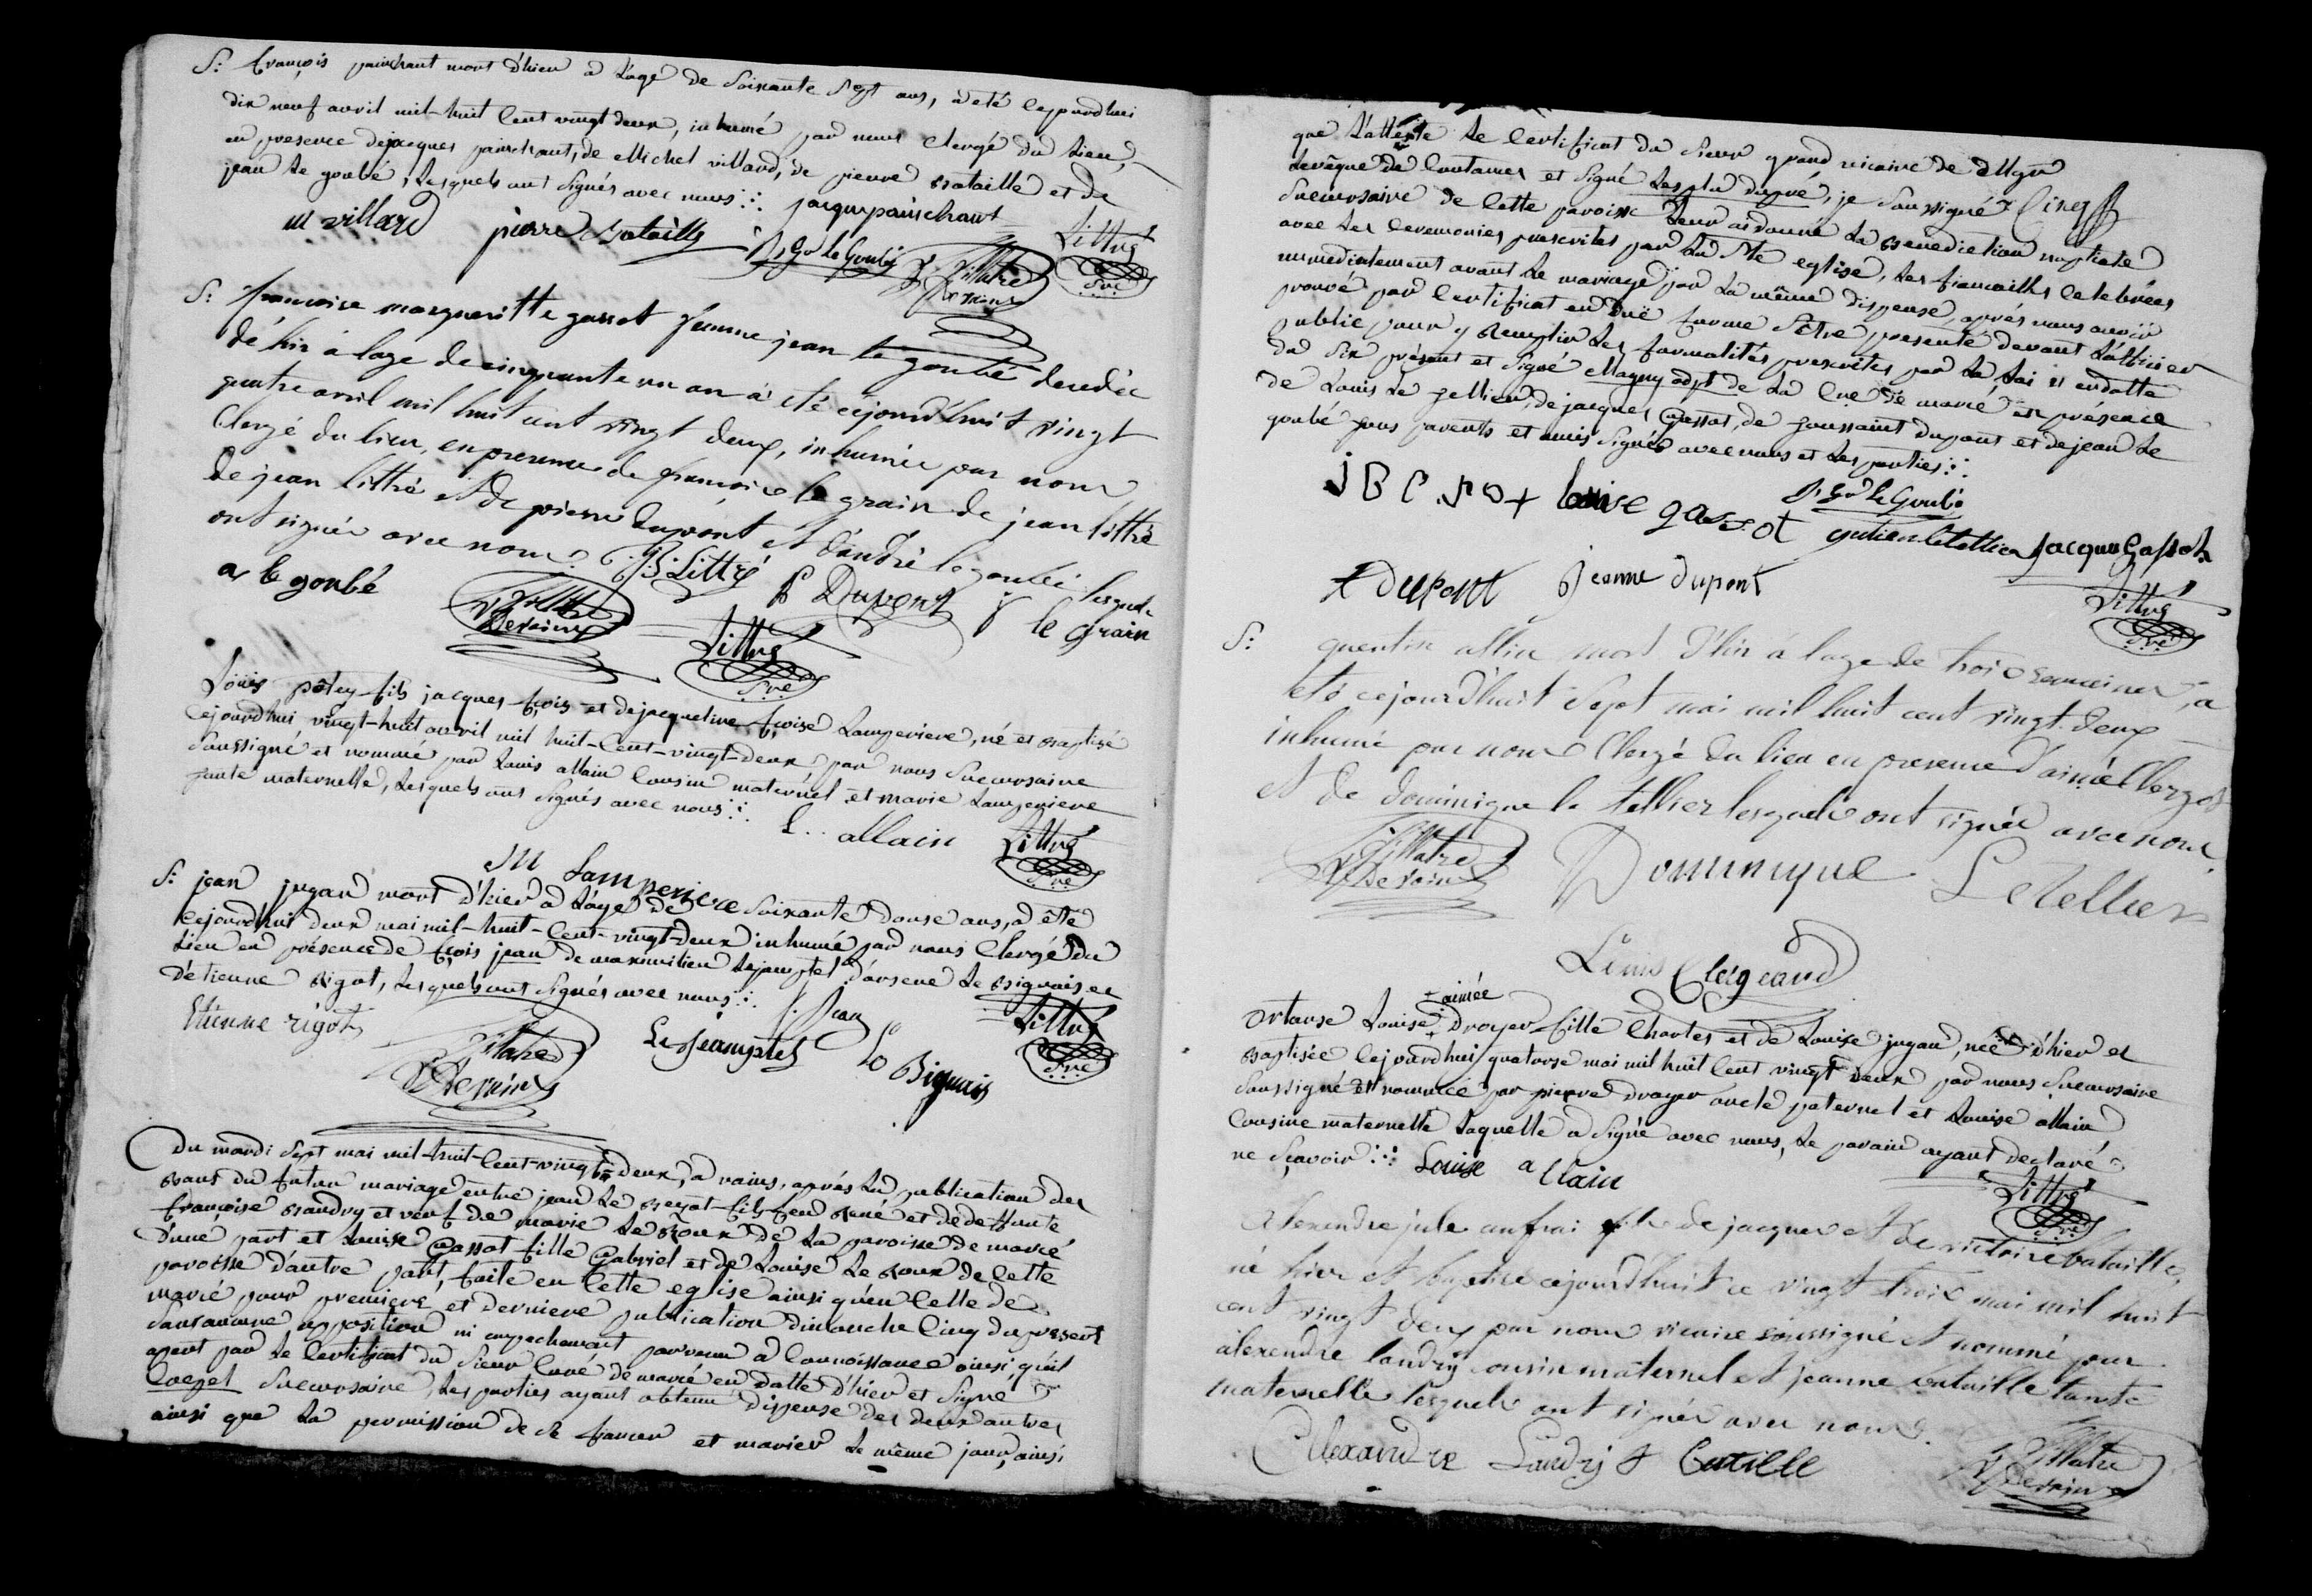 S: François painchant mort d'hier à l'age de Soixante Sept ans, a été cejourdhui
dix neuf avril mil-huit Cent vingt deux, inhumé par nous Clergé du Lieu,
en presence de jacques painchaut, de Michel villard, de pierre Bataille et de
jean le goubé, lesquels ont signés avec nous ∴ jacque painchaut
M villard pierre Bataille Le Goubé Littré
S: francoise margueritte gassot femme jean le goubé decedée
d'hir à lage de cinquante un an a été cejourd'huit vingt
quatre avril mil huit cent vingt deux, inhumée par nous
Clergé du lieu, en presence de francois le grain de jean littré
de jean littré et de pierre dupont et d'andré le goubé lesquels
ont signés avec nous. J. B. Littré P Dupont f le Grain
a le goubé
Littré
Sre
Louis potey fils jacques fçois et de jacqueline fçoise Lamperiere, né et Baptisé
cejourdhui vingt-huit avril mil huit-Cent-vingt-deux par nous Sucursaire
Soussigné et nommé par Louis allain Cousin maternel et marie Lamperiere
tante maternelle, Lesquels ont Signés avec nous ∴
L.. allain Littré
M Lamperiere
S: jean jugan mort d'hier à L'age de Soixante Douse ans, a été
cejourdhui deux mai mil-huit-Cent-vingt-deux inhumé par nous Clergé du
Lieu en présence de fçois jean de maximilien Lejamptel d'arsene Le Bignais et
D'étienne Rigot, Lesquels ont Signés avec nous ∴
Etienne rigot Le Jeamptel f. Jean Le Bignais Littré
Du mardi Sept mai mil-huit-Cent-vingt-deux, à rains, après La publication des
Bans du futur mariage entre jean Le fils feu René et de deffunte
françoise Baudry et veuf de marie Le Roux de La paroisse de marcé
D'une part et Louise Gassot fille Gabriel et de Louise Le Roux de Cette
paroisse d'autre part, faite en Cette eglise ainsi qu'en Celle de
marcé pour premiere et derniere publication dimanche Cinq du present
Sans aucune opposition ni empechement parvenu à Connoissance ainsi qu'il
apert par Le Certificat du Sieur Curé de marcé en datte d'hier et Signé
Sucursaire, Les parties ayant obtenu Dispense des deux autres
ainsi que La permission de se fiancer et marier Le même jour, ainsi
que L'atteste Le Certificat du Sieur grand vicaire de Mgr
Levêque de Coutances et Signé Lesplu Dupré, je Soussigné
Sucursaire de Cette paroisse Leur ai donné La Benediction nuptiale
avec Les Ceremonies prescrites par La Ste eglise, Les fiancailles Celebrées
immediatement avant Le mariage par La même dispense, après nous avoir
prouvé par Certificat en Duë forme S'être presenté devant L'officier
public pour y Remplir Les formalités prescrites par La Loi et en datte
du Six présent et Signé Magny adjt de La Cne de marcé en présence
de Louis Le tellier, de jacques Gassot, de toussaint dupont et de jean Le
goubé tous parents et amis Signés avec nous et Les parties ∴
Le Goubé
louise gassot jacque Gassot
t dupont Jeanne dupont Littré
Sre
S: quentin allin mort d'hir à lage de trois semaines, a
eté cejourd'huit Sept mai mil huit cent vingt deux
inhumé par nous Clergé du lieu en presence d'aimé Clergot
et de dominique le tellier lesquels ont signés avec nous.
Dominique Letellier
Littré
Ortanse Louise +aimée Droyer fille Charles et de Louise jugan, née d'hier et
Baptisée Cejourdhui quatorse mai mil huit Cent vingt deux par nous Sucursaire
Soussigné et nommée par pierre Droyer oncle paternel et Louise allain
Cousine maternelle Laquelle a Signé avec nous, Le parain ayant declaré
ne Sçavoir ∴ Louise allain Littré
Sre
Alexendre jule anfrai fils de jacques et de victoire bataille,
né hier et baptise cejourdhuit ce vingt trois mai mil huit
cent vingt deux par nous vicaire soussigné et nommé par
alexendre landry cousin maternel et jeanne bataille tante
maternelle lesquels ont signés avec nous.
Alexandre Landry